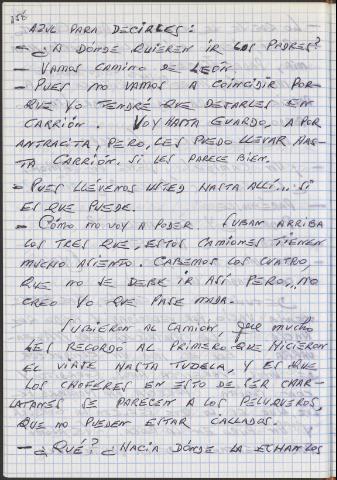 156
AZUL PARA DECIRLES:
- ¿A DÓNDE QUIEREN IR LOS PADRES?
- VAMOS CAMINO DE LEÓN
- PUES NO VAMOS A COINCIDIR POR-
QUE YO TENDRÉ QUE DEJARLES EN
CARRIÓN. VOY HASTA GUARDO, A POR
ANTRACITA, PERO, LES PUEDO LLEVAR HAS-
TA CARRIÓN. SI LES PARECE BIEN.
- PUES LLÉVENOS USTED HASTA ALLÍ... SI
ES QUE PUEDE.
- CÓMO NO VOY A PODER SUBAN ARRIBA
LOS TRES QUE, ESTOS CAMIONES TIENEN
MUCHO ASIENTO. CABEMOS LOS CUATRO,
QUE NO SE DEBE IR ASÍ PERO... NO
CREO YO QUE PASE NADA.
SUBIERON AL CAMIÓN, que mucho
LES RECORDÓ AL PRIMERO QUE HICIERON
EL VIAJE HASTA TUDELA, Y ES QUE
LOS CHOFERES EN ESTO DE SER CHAR-
LATANES SE PARECEN A LOS PELUQUEROS,
QUE NO PUEDEN ESTAR CALLADOS.
- ¿QUÉ? ¿HACIA DÓNDE LA ECHAN LOS